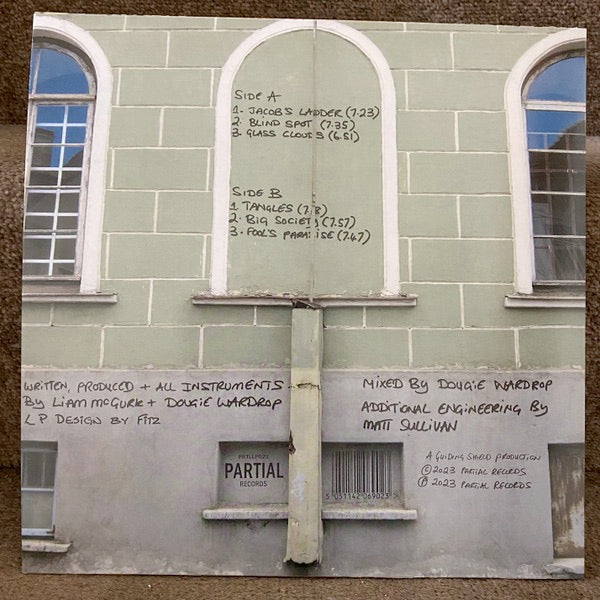 SIDE A
1. JACOB'S LADDER (7.23)
2. BLIND SPOT (7.35)
3. GLASS CLOUDS (6.51)
SIDE B
1 TANGLES
2. BIG SOCIETY (7.57)
3. FOOL'S PARADISE (7.47)
WRITTEN, PRODUCED + ALL INSTRUMENTS
BY LIAM McGURK + DOUGIE WARDROP
LP DESIGN BY FITZ
MIXED BY DOUGIE WARDROP
ADDITIONAL ENGINEERING BY
MATT SULLIVAN
A GUIDING SHIELD PRODUCTION
© 2023 PARTIAL RECORDS
℗ 2023 PARTIAL RECORDS
PRTLLP023
PARTIAL
RECORDS
5 051142 069023 >